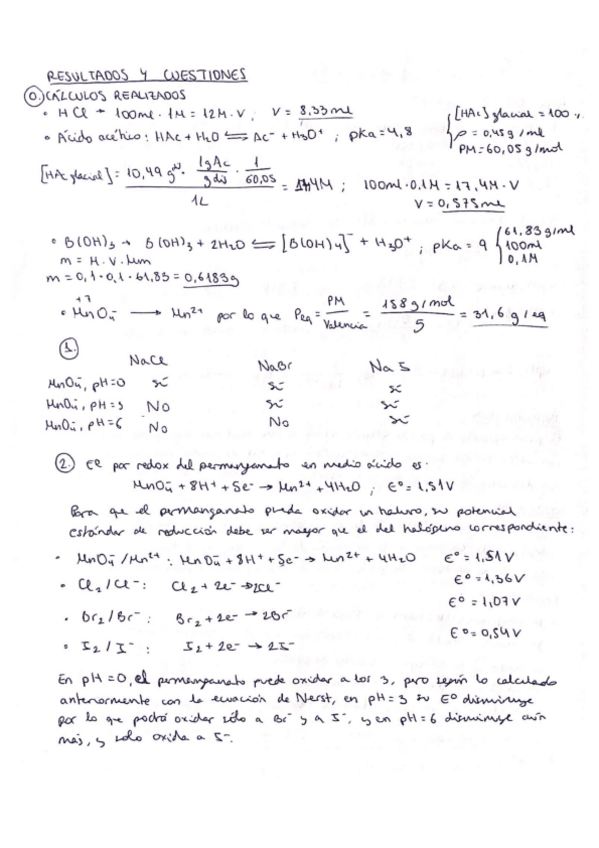 RESULTADOS Y CUESTIONES
0. CÁLCULOS REALIZADOS
• HCl → 100ml · 1M = 12M · V ; V = 8,33 ml
• Ácido acético: HAc + H2O ⇌ Ac⁻ + H3O⁺ ; pKa = 4,8
[HAc] glacial = 100
ρ = 0,45 g/ml
PM = 60,05 g/mol
[HAc glacial] = 10,49 g · 1g Ac / g dis · 1 / 60,05 / 1L = 17,4M ; 100ml · 0,1M = 17,4M · V
V = 0,575 ml
• B(OH)3 → B(OH)3 + 2H2O ⇌ [B(OH)4]⁻ + H3O⁺ ; pKa = 9
61,83 g/ml
100ml
0,1M
m = M · V · Mm
m = 0,1 · 0,1 · 61,83 = 0,6183 g
+7
• MnO4⁻ → Mn²⁺ por lo que Peq = PM / Valencia = 158 g/mol / 5 = 31,6 g/eq
1.
NaCl NaBr NaI
MnO4⁻, pH=0 sí sí sí
MnO4⁻, pH=3 No sí sí
MnO4⁻, pH=6 No No sí
2. par redox del permanganato en medio ácido es:
MnO4⁻ + 8H⁺ + 5e⁻ → Mn²⁺ + 4H2O ; E° = 1,51V
Para que el permanganato pueda oxidar un haluro, su potencial
estándar de reducción debe ser mayor que el del halógeno correspondiente:
• MnO4⁻/Mn²⁺ : MnO4⁻ + 8H⁺ + 5e⁻ → Mn²⁺ + 4H2O E° = 1,51 V
• Cl2/Cl⁻: Cl2 + 2e⁻ → 2Cl⁻ E° = 1,36V
• Br2/Br⁻: Br2 + 2e⁻ → 2Br⁻ E° = 1,07V
• I2/I⁻: I2 + 2e⁻ → 2I⁻ E° = 0,54V
En pH = 0, el permanganato puede oxidar a los 3, pero según lo calculado
anteriormente con la ecuación de Nerst, en pH = 3 su E° disminuye
por lo que podrá oxidar sólo a Br⁻ y a I⁻, y en pH = 6 disminuye aún
más, y solo oxida a I⁻.